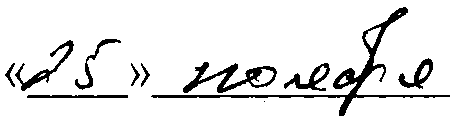 «25» ноября